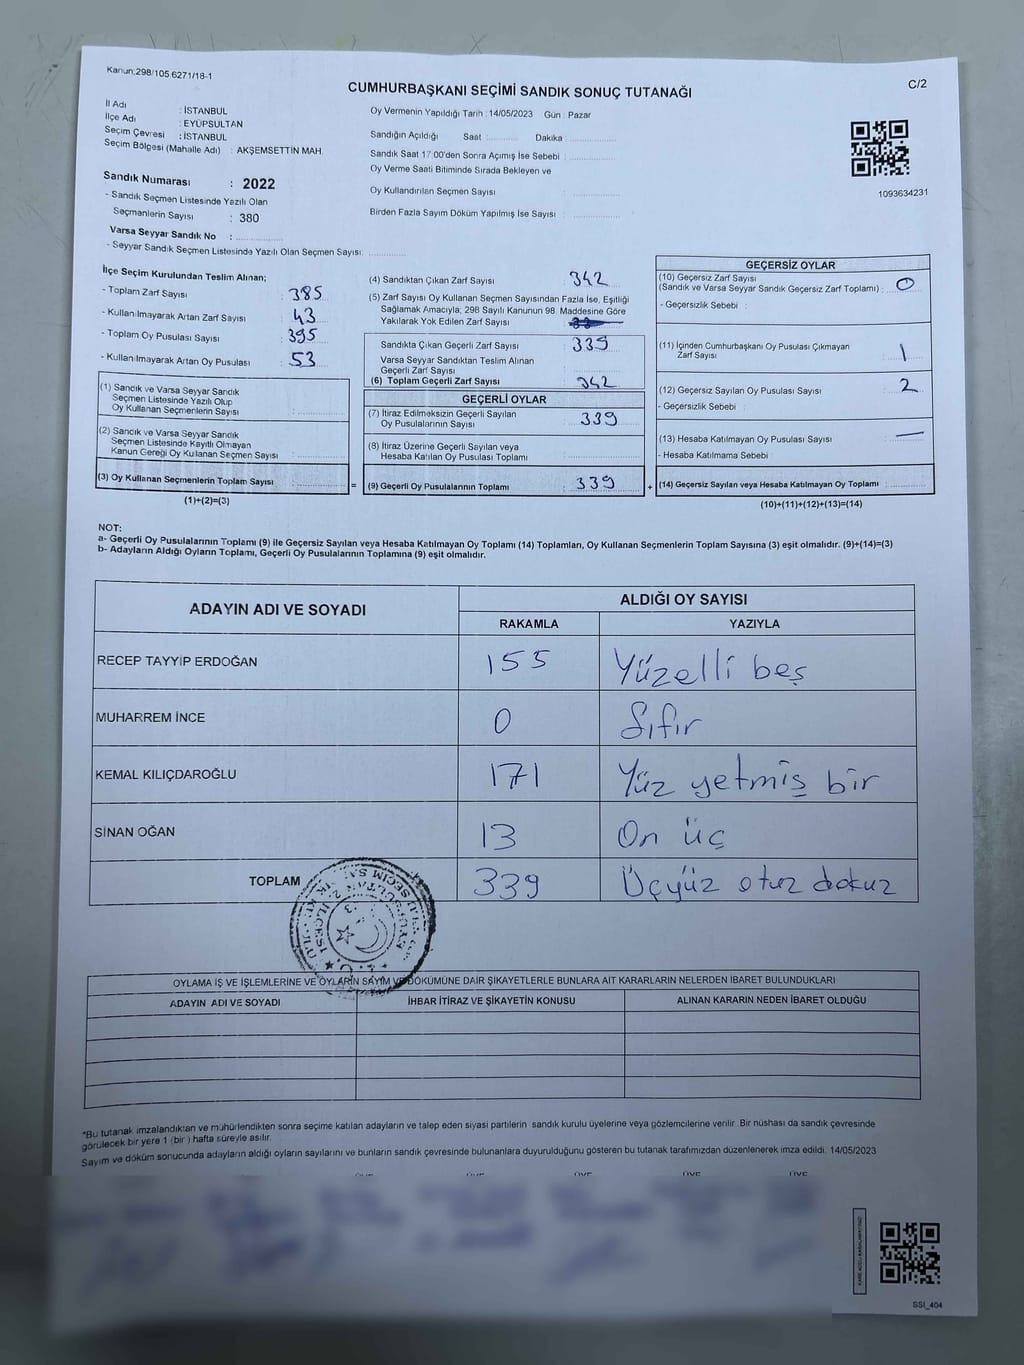 Kanun:298/105.6271/18-1
C/2
CUMHURBAŞKANI SEÇİMİ SANDIK SONUÇ TUTANAĞI
İl Adı : İSTANBUL
İlçe Adı : EYÜPSULTAN
Seçim Çevresi : İSTANBUL
Seçim Bölgesi (Mahalle Adı) : AKŞEMSETTİN MAH.
Sandık Numarası : 2022
- Sandık Seçmen Listesinde Yazılı Olan
Seçmenlerin Sayısı : 380
Varsa Seyyar Sandık No :
- Seyyar Sandık Seçmen Listesinde Yazılı Olan Seçmen Sayısı:
Oy Vermenin Yapıldığı Tarih : 14/05/2023 Gün : Pazar
Sandığın Açıldığı Saat : Dakika :
Sandık Saat 17:00'den Sonra Açımış İse Sebebi :
Oy Verme Saati Bitiminde Sırada Bekleyen ve
Oy Kullandırılan Seçmen Sayısı :
Birden Fazla Sayım Döküm Yapılmış İse Sayısı :
1093634231
İlçe Seçim Kurulundan Teslim Alınan;
- Toplam Zarf Sayısı : 385
- Kullanılmayarak Artan Zarf Sayısı : 43
- Toplam Oy Pusulası Sayısı : 395
- Kullanılmayarak Artan Oy Pusulası : 53
(1) Sandık ve Varsa Seyyar Sandık
Seçmen Listesinde Yazılı Olup
Oy Kullanan Seçmenlerin Sayısı :
(2) Sandık ve Varsa Seyyar Sandık
Seçmen Listesinde Kayıtlı Olmayan
Kanun Gereği Oy Kullanan Seçmen Sayısı :
(3) Oy Kullanan Seçmenlerin Toplam Sayısı :
(1)+(2)=(3)
(4) Sandıktan Çıkan Zarf Sayısı : 342
(5) Zarf Sayısı Oy Kullanan Seçmen Sayısından Fazla İse, Eşitliği
Sağlamak Amacıyla; 298 Sayılı Kanunun 98. Maddesine Göre
Yakılarak Yok Edilen Zarf Sayısı :
Sandıkta Çıkan Geçerli Zarf Sayısı : 339
Varsa Seyyar Sandıktan Teslim Alınan
Geçerli Zarf Sayısı :
(6) Toplam Geçerli Zarf Sayısı : 342
GEÇERLİ OYLAR
(7) İtiraz Edilmeksizin Geçerli Sayılan
Oy Pusulalarının Sayısı : 339
(8) İtiraz Üzerine Geçerli Sayılan veya
Hesaba Katılan Oy Pusulası Toplamı :
= (9) Geçerli Oy Pusulalarının Toplamı : 339
GEÇERSİZ OYLAR
(10) Geçersiz Zarf Sayısı
(Sandık ve Varsa Seyyar Sandık Geçersiz Zarf Toplamı) : 0
- Geçersizlik Sebebi :
(11) İçinden Cumhurbaşkanı Oy Pusulası Çıkmayan
Zarf Sayısı : 1
(12) Geçersiz Sayılan Oy Pusulası Sayısı : 2
- Geçersizlik Sebebi :
(13) Hesaba Katılmayan Oy Pusulası Sayısı : —
- Hesaba Katılmama Sebebi :
+ (14) Geçersiz Sayılan veya Hesaba Katılmayan Oy Toplamı :
(10)+(11)+(12)+(13)=(14)
NOT:
a- Geçerli Oy Pusulalarının Toplamı (9) ile Geçersiz Sayılan veya Hesaba Katılmayan Oy Toplamı (14) Toplamları, Oy Kullanan Seçmenlerin Toplam Sayısına (3) eşit olmalıdır. (9)+(14)=(3)
b- Adayların Aldığı Oyların Toplamı, Geçerli Oy Pusulalarının Toplamına (9) eşit olmalıdır.
ADAYIN ADI VE SOYADI
ALDIĞI OY SAYISI
RAKAMLA YAZIYLA
RECEP TAYYİP ERDOĞAN 155 Yüzelli beş
MUHARREM İNCE 0 Sıfır
KEMAL KILIÇDAROĞLU 171 Yüz yetmiş bir
SİNAN OĞAN 13 On üç
TOPLAM 339 Üçyüz otuz dokuz
OYLAMA İŞ VE İŞLEMLERİNE VE OYLARIN SAYIM VE DÖKÜMÜNE DAİR ŞİKAYETLERLE BUNLARA AİT KARARLARIN NELERDEN İBARET BULUNDUKLARI
ADAYIN ADI VE SOYADI İHBAR İTİRAZ VE ŞİKAYETİN KONUSU ALINAN KARARIN NEDEN İBARET OLDUĞU
*Bu tutanak imzalandıktan ve mühürlendikten sonra seçime katılan adayların ve talep eden siyasi partilerin sandık kurulu üyelerine veya gözlemcilerine verilir. Bir nüshası da sandık çevresinde
görülecek bir yere 1 (bir ) hafta süreyle asılır.
Sayım ve döküm sonucunda adayların aldığı oyların sayılarını ve bunların sandık çevresinde bulunanlara duyurulduğunu gösteren bu tutanak tarafımızdan düzenlenerek imza edildi. 14/05/2023
SSI_404